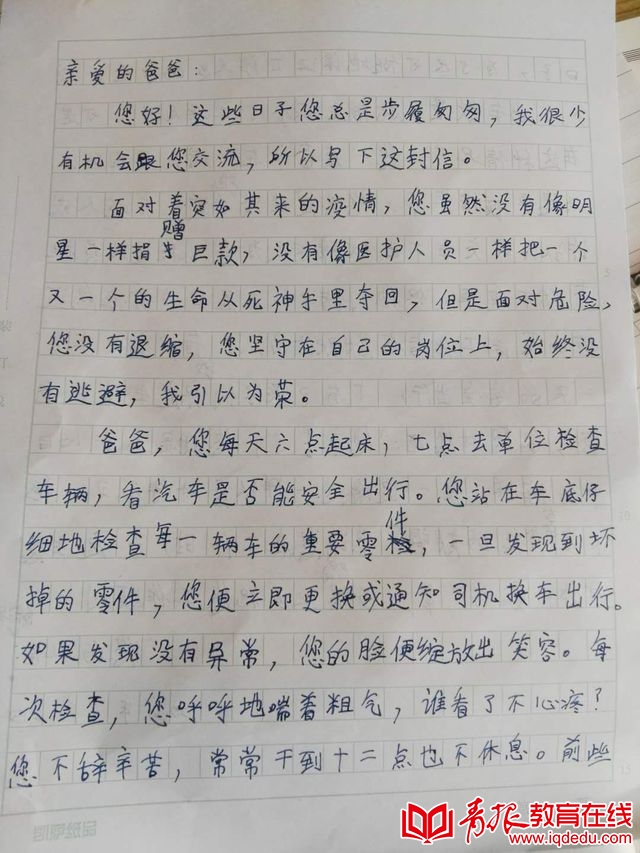 亲爱的爸爸：
您好！这些日子您总是步履匆匆，我很少
有机会跟您交流，所以写下这封信。
面对着突如其来的疫情，您虽然没有像明
星一样捐赠巨款，没有像医护人员一样把一个
又一个的生命从死神手里夺回，但是面对危险，
您没有退缩，您坚守在自己的岗位上，始终没
有逃避，我引以为荣。
爸爸，您每天六点起床，七点去单位检查
车辆，看汽车是否能安全出行。您站在车底仔
细地检查每一辆车的重要零件，一旦发现到坏
掉的零件，您便立即更换或通知司机换车出行。
如果发现没有异常，您的脸便绽放出笑容。每
次检查，您呼呼地喘着粗气，谁看了不心疼？
您不辞辛苦，常常干到十二点也不休息。前些
青报教育在线
www.iqdedu.com